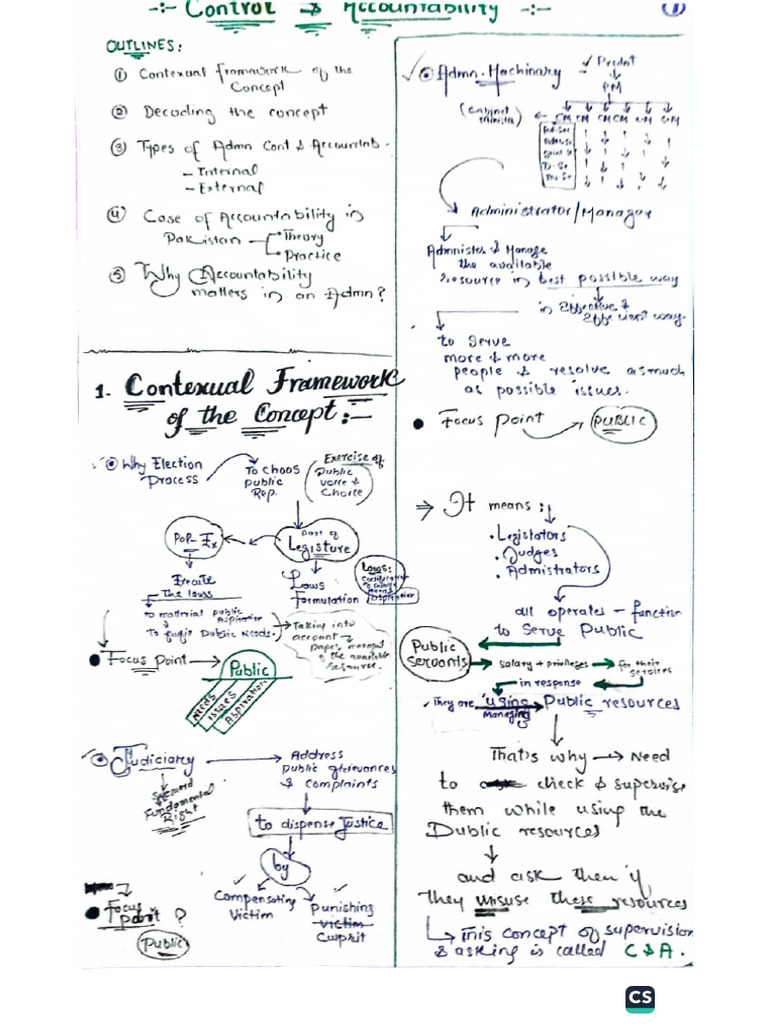 -:- Control & Accountability -:-
1
OUTLINES:
① Contexual Framework of the
Concept
② Decoding the concept
③ Types of Admn Cont & Accountab.
- Internal
- External
④ Case of Accountability in
Pakistan - Theory
Practice
⑤ Why Accountability
matters in an Admn?
1. Contexual Framework
of the Concept:-
Why Election
Process
To Choos
public
Rep.
Exercise of
Public
voice &
Choice
Part of
Legisture
Pol Ex
Execute
the laws
to material public
Aspiration
To fulfil Public Needs.
Laws
Formulation
Laws:
Aspiration
Taking into
account
of the available
Resource.
Focus Point → Public
Needs
Issues
Aspiration
Judiciary
Fundamental
Right
Address
public grievances
& complaints
to dispense Justice
by
Compensating
Victim
Punishing
Victim
Culprit
Focus
point ?
Public
Admn. Machinary
Prednt
PM
(Cabinet
CM CM CM CM CM CM
Administrator/Manager
Administer & Manage
the available
resource in best possible way
in Effective &
Efficient way.
to serve
more & more
people & resolve as much
as possible issues.
Focus Point → PUBLIC
⇒ It means:
• Legislators
• Judges
• Admistrators
all operates - function
to Serve Public
Public
Servants
→ Salary + privileges → for their
Services
in response
They are using Public resources
Managing
That's why → Need
to check & supervise
them while using the
Public resources
and ask them if
they misuse these resources
This concept of supervision
& asking is called C & A.
CS